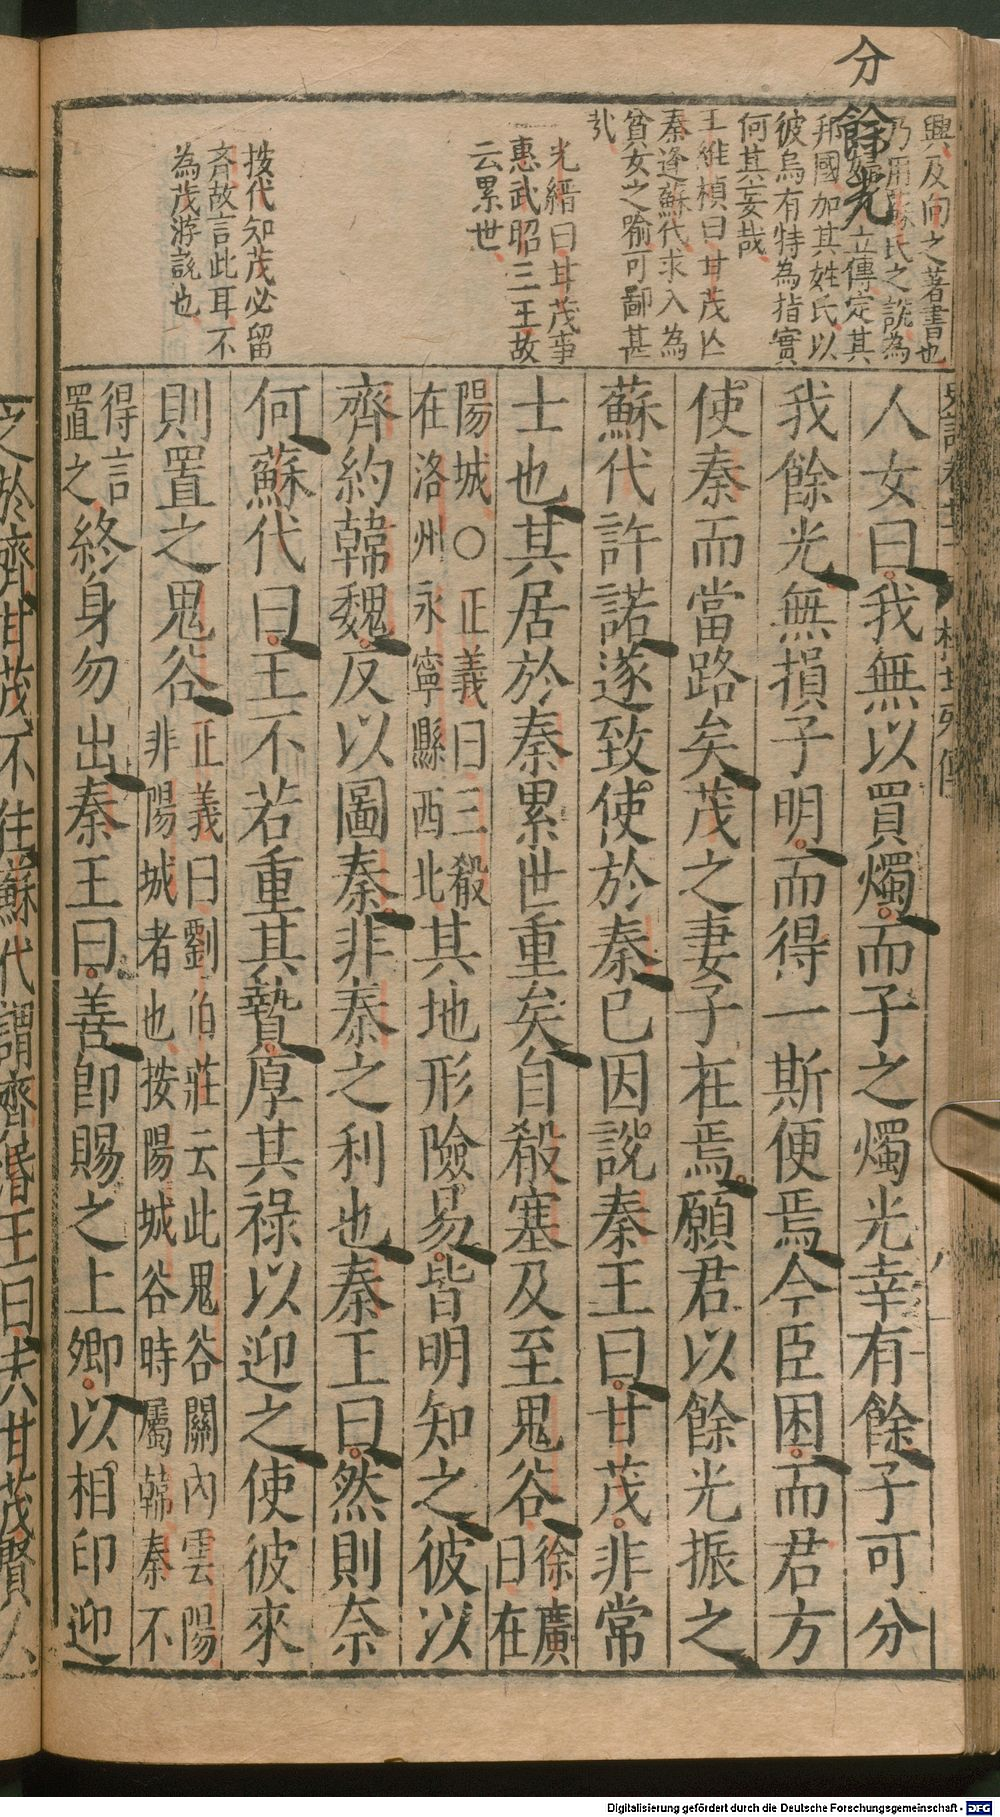 分餘光
興及向之著書也
乃用蘇氏之說為
立傳定其
邦國加其姓氏以
彼烏有特為指實
何其妄哉
王維楨曰甘茂亡
秦逢蘇代求入為
貧女之喻可鄙甚
哉
光縉曰甘茂事
惠武昭三王故
云累世
按代知茂必留
齊故言此耳不
為茂游說也
人女曰我無以買燭而子之燭光幸有餘子可分
我餘光無損子明而得一斯便焉今臣困而君方
使秦而當路矣茂之妻子在焉願君以餘光振之
蘇代許諾遂致使於秦已因說秦王曰甘茂非常
士也其居於秦累世重矣自殽塞及至鬼谷徐廣曰在
陽城○正義曰三殽在洛州永寧縣西北其地形險易皆明知之彼以
齊約韓魏反以圖秦非秦之利也秦王曰然則奈
何蘇代曰王不若重其贄厚其祿以迎之使彼來
則置之鬼谷正義曰劉伯莊云此鬼谷關內雲陽非陽城者也按陽城谷時屬韓秦不
得言置之終身勿出秦王曰善即賜之上卿以相印迎
之於齊甘茂不往蘇代謂齊湣王曰夫甘茂賢人
Digitalisierung gefördert durch die Deutsche Forschungsgemeinschaft - DFG